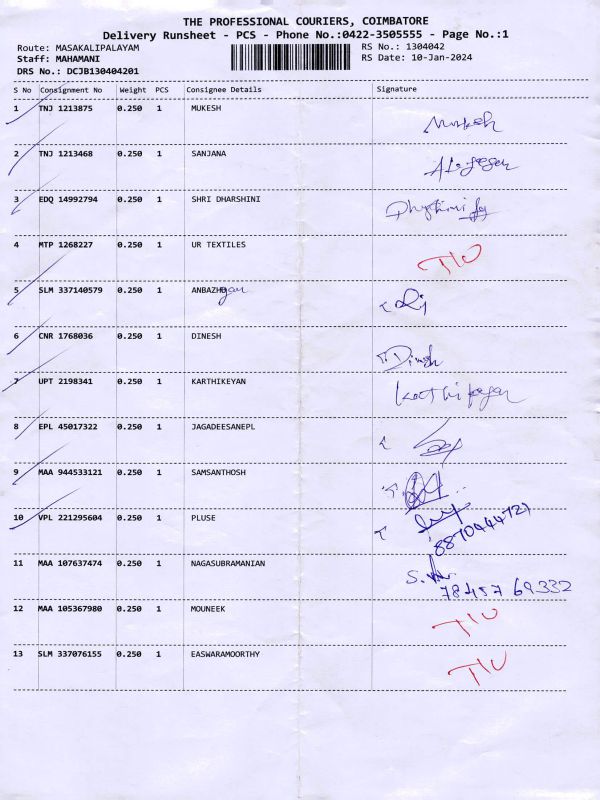 THE PROFESSIONAL COURIERS, COIMBATORE
Delivery Runsheet - PCS - Phone No.:0422-3505555 - Page No.:1
Route: MASAKALIPALAYAM RS No.: 1304042
Staff: MAHAMANI RS Date: 10-Jan-2024
DRS No.: DCJB130404201
S No Consignment No Weight PCS Consignee Details Signature
1 TNJ 1213875 0.250 1 MUKESH
Mukesh
2 TNJ 1213468 0.250 1 SANJANA
3 EDQ 14992794 0.250 1 SHRI DHARSHINI
4 MTP 1268227 0.250 1 UR TEXTILES
TIU
5 SLM 337140579 0.250 1 ANBAZHagan
6 CNR 1768036 0.250 1 DINESH
Dinesh
7 UPT 2198341 0.250 1 KARTHIKEYAN
Karthikeyan
8 EPL 45017322 0.250 1 JAGADEESANEPL
9 MAA 944533121 0.250 1 SAMSANTHOSH
10 VPL 221295604 0.250 1 PLUSE
8870444721
11 MAA 107637474 0.250 1 NAGASUBRAMANIAN
78457 69332
12 MAA 105367980 0.250 1 MOUNEEK
TIU
13 SLM 337076155 0.250 1 EASWARAMOORTHY
TIU